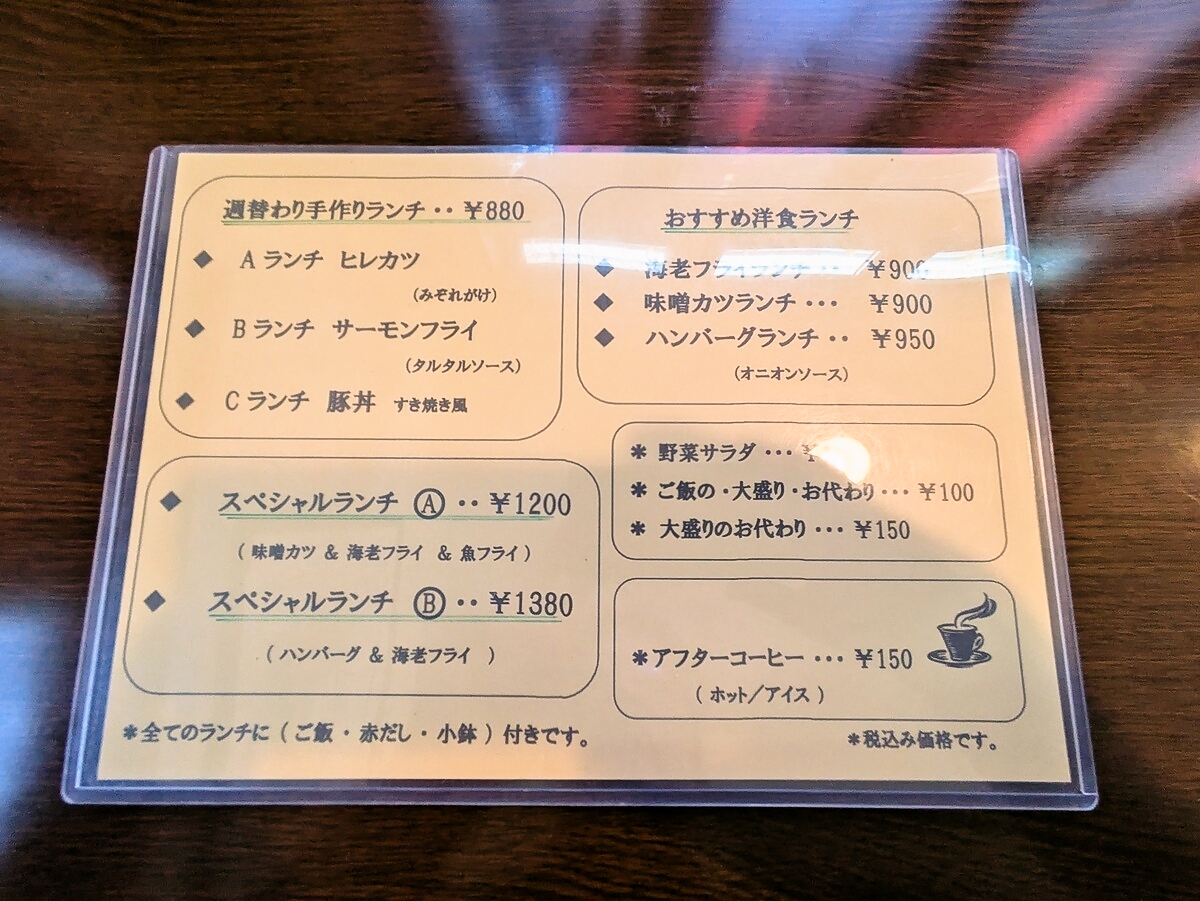 週替わり手作りランチ‥¥880
◆ Aランチ ヒレカツ
（みぞれがけ）
◆ Bランチ サーモンフライ
（タルタルソース）
◆ Cランチ 豚丼 すき焼き風
◆ スペシャルランチ Ⓐ‥¥1200
（味噌カツ ＆ 海老フライ ＆ 魚フライ）
◆ スペシャルランチ Ⓑ‥¥1380
（ハンバーグ ＆ 海老フライ ）
＊全てのランチに（ご飯・赤だし・小鉢）付きです。
おすすめ洋食ランチ
◆ 海老フライランチ‥ ¥900
◆ 味噌カツランチ… ¥900
◆ ハンバーグランチ‥ ¥950
（オニオンソース）
＊ 野菜サラダ…¥
＊ ご飯の・大盛り・お代わり…¥100
＊ 大盛りのお代わり…¥150
＊アフターコーヒー…¥150
（ホット／アイス）
＊税込み価格です。